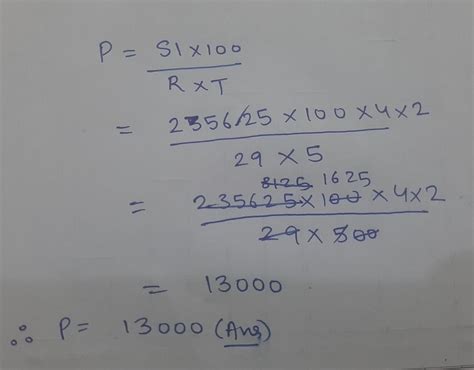 P = SI×100
R×T
= 2356/25 × 100 × 4 × 2
29 × 5
8125 1625
= 235625 × 100 × 4×2
29 × 500
= 13000
∴ P = 13000 (Ans)